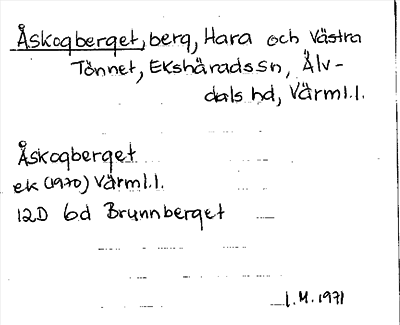 Åskogberget, berg, Hara och Västra
Tönnet, Ekshärads sn, Älv-
dals hd, Värml.l.
Åskogberget
ek (1970) Värml.l.
12D 6d Brunnberget
I.M. 1971